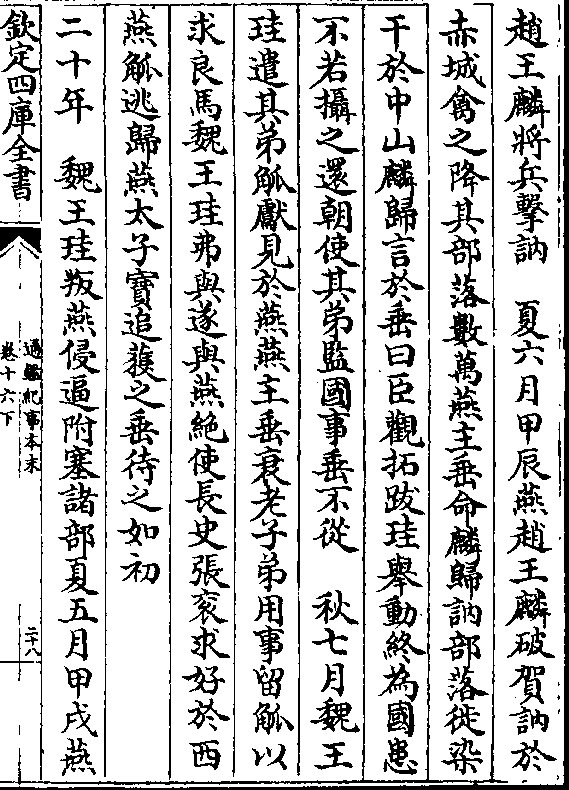 趙王麟將兵擊訥　夏六月甲辰燕趙王麟破賀訥於
赤城禽之降其部落數萬燕主垂命麟歸訥部落徙染
干於中山麟歸言於垂曰臣觀拓跋珪舉動終為國患
不若攝之還朝使其弟監國事垂不從　秋七月魏王
珪遣其弟觚獻見於燕燕主垂衰老子弟用事留觚以
求良馬魏王珪弗與遂與燕絶使長史張衮求好於西
燕觚逃歸燕太子寶追獲之垂待之如初
二十年　魏王珪叛燕侵逼附塞諸部夏五月甲戌燕
欽定四庫全書
通鑑紀事本末
卷十六下
二十八